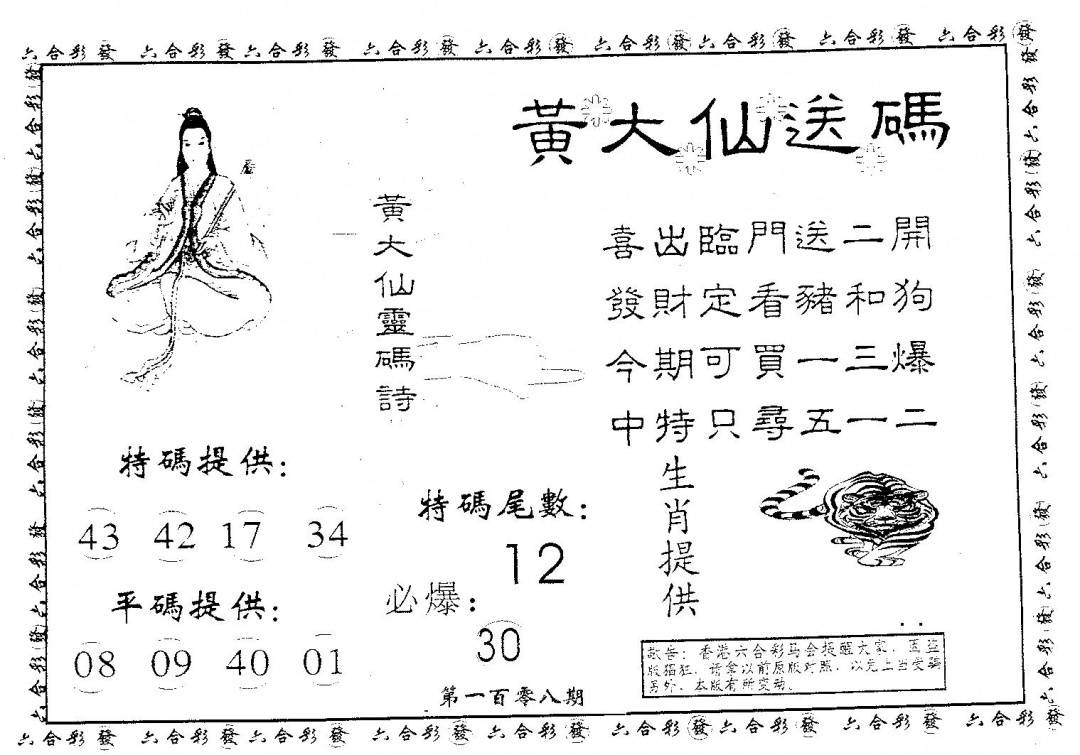 六合彩發 六合彩發六合彩發 六合彩發 六合彩發 六合彩發六合彩發 六合彩發 六合彩發
黃大仙送碼
黃大仙靈碼詩
喜出臨門送二開
發財定看豬和狗
今期可買一三爆
中特只尋五一二
特碼提供：
43 42 17 34
平碼提供：
08 09 40 01
特碼尾數：
12
必爆：
30
第一百零八期
生肖提供
敬告：香港六合彩马会提醒大家，因盗
版猖狂，请拿以前原版对照，以免上当受骗
另外，本版有所变动。
六合彩發 六合彩發六合彩發 六合彩發 六合彩發 六合彩發六合彩發 六合彩發 六合彩發